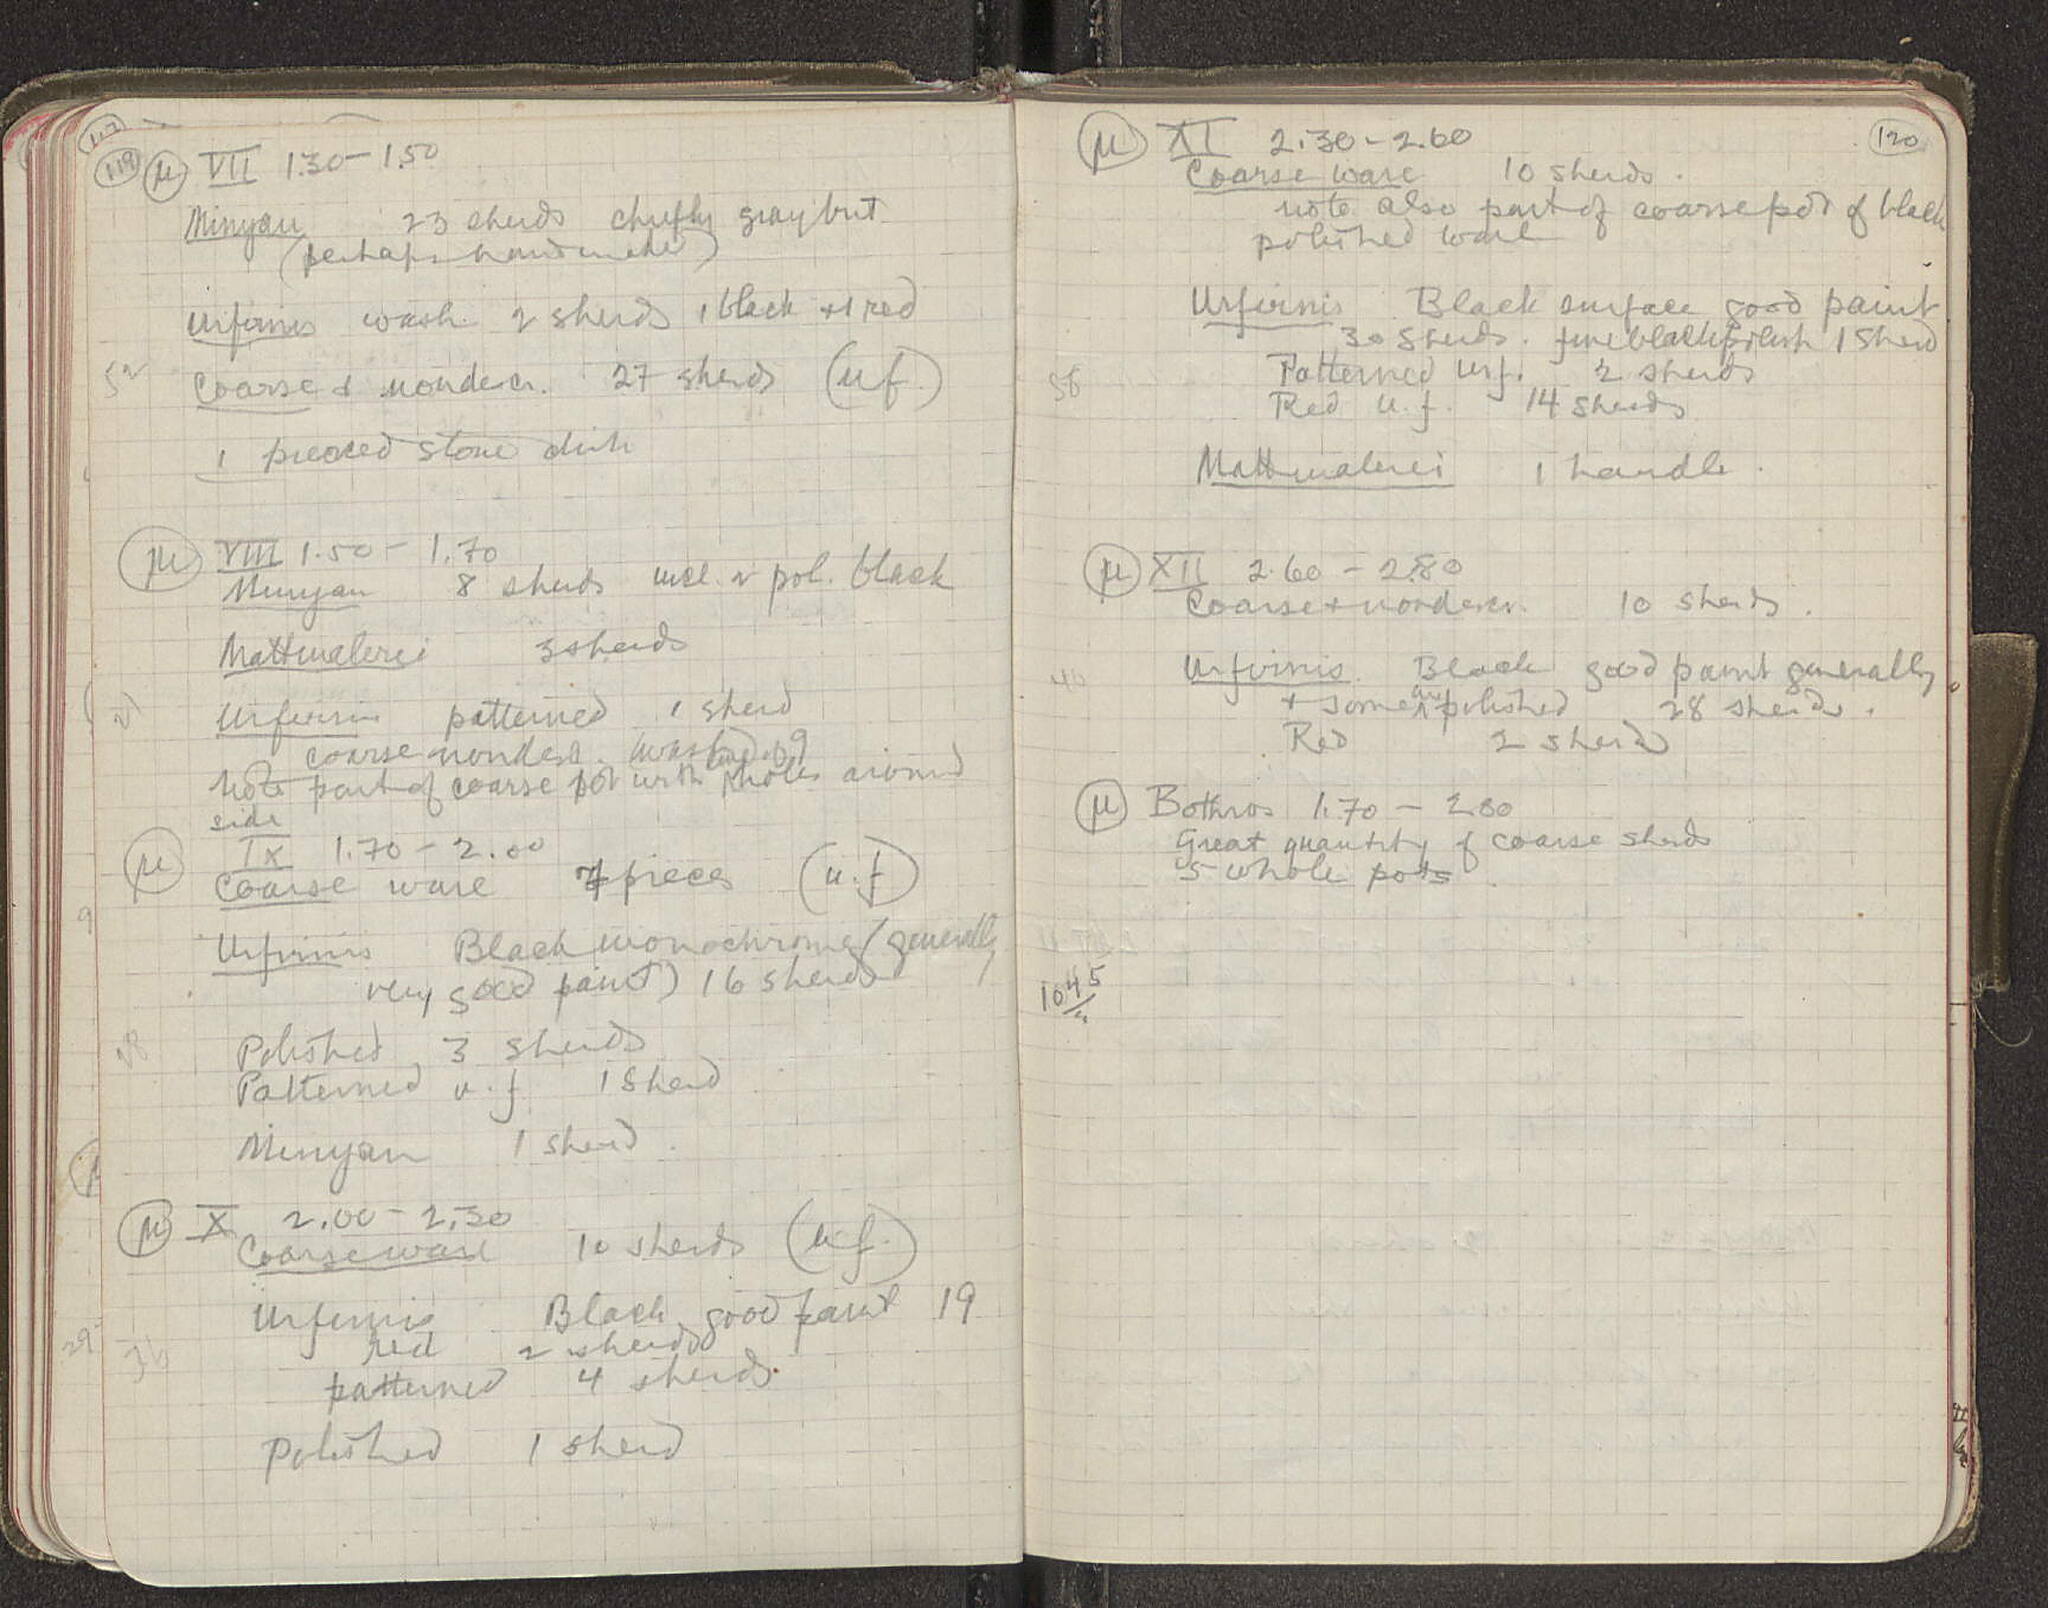 119 μ VII 1.30-1.50
Minyan 23 sherds chiefly gray but
(perhaps handmade)
Urfirnis wash 2 sherds 1 black +1 red
52
Coarse + nondecr. 27 sherds (u.f.)
1 pierced stone dish
μ VIII 1.50 - 1.70
Minyan 8 sherds incl. 2 pol. black
Mattmalerei 3 sherds
21
Urfirnis patterned 1 sherd
coarse nondecr. 9
Note part of coarse pot with holes around
side
μ IX 1.70 - 2.00
Coarse ware 7 pieces (u.f)
Urfirnis Black monochrome (generally
very good paint) 16 sherds
28
Polished 3 sherds
Patterned u.f 1 sherd
Minyan 1 sherd.
μ X 2.00 - 2.30
Coarse ware 10 sherds (u.f.)
Urfirnis Black good paint 19
red 2 sherds
36
patterned 4 sherds.
Polished 1 sherd
120
μ XI 2.30 - 2.60
Coarse ware 10 sherds.
note also part of coarse pot of black
polished ware
Urfirnis Black surface good paint
30 sherds. fine black polish 1 sherd
Patterned urf. 2 sherds
58
Red u.f. 14 sherds
Mattmalerei 1 handle.
μ XII 2.60 - 2.80
Coarse + nondecr. 10 sherds.
40
Urfirnis. Black good paint generally
+ some unpolished 28 sherds.
Red 2 sherds
μ Bothros 1.70 - 2.80
Great quantity of coarse sherds
5 whole pots
1045